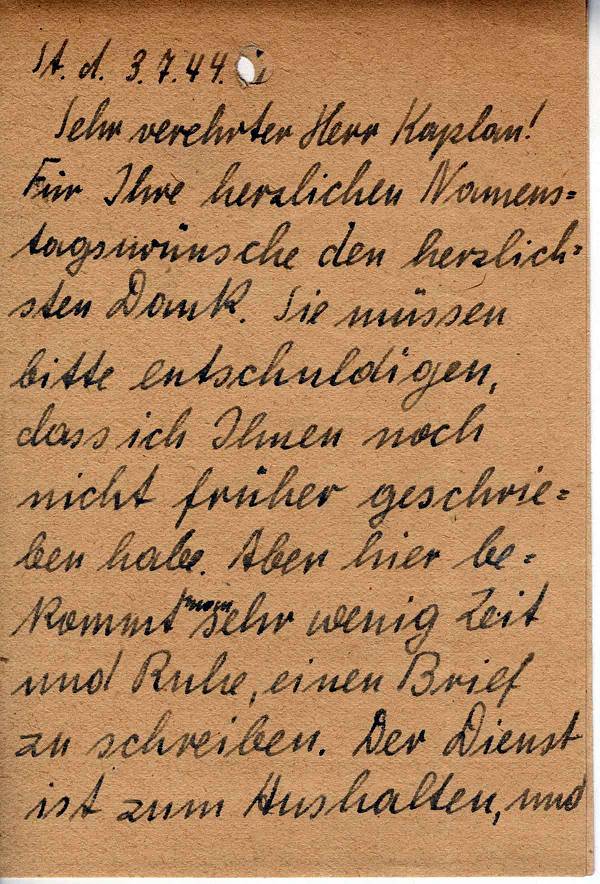 St. d. 3.7.44.
Sehr verehrter Herr Kaplan!
Für Ihre herzlichen Namens=
tagswünsche den herzlich=
sten Dank. Sie müssen
bitte entschuldigen,
dass ich Ihnen noch
nicht früher geschrie=
ben habe. Aber hier be=
kommt man sehr wenig Zeit
und Ruhe, einen Brief
zu schreiben. Der Dienst
ist zum Aushalten, und